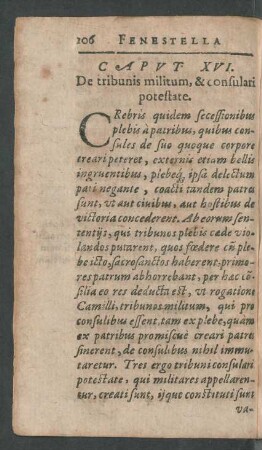 106 FENESTELLA
CAPVT XVI.
De tribunis militum, & consulari
potestate.
CRebris quidem secessionibus
plebis à patribus, quibus con-
sules de suo quoque corpore
creari peteret, externis etiam bellis
ingruentibus, plebeq; ipsa delectum
pati negante, coacti tandem patres
sunt, vt aut ciuibus, aut hostibus de
victoria concederent. Ab eorum sen-
tentijs, qui tribunos plebis cæde vio-
landos putarent, quos fœdere cũ ple-
be icto, sacrosanctos haberent, primo-
res patrum abhorrebant, per hæc cõ-
silia eo res deducta est, vt rogatione
Camilli, tribunos militum, qui pro
consulibus essent, tam ex plebe, quàm
ex patribus promiscuè creari patres
sinerent, de consulibus nihil immu-
taretur. Tres ergo tribuni consulari
potestate, qui militares appellaren-
tur, creati sunt, ijque constituti sunt
va-